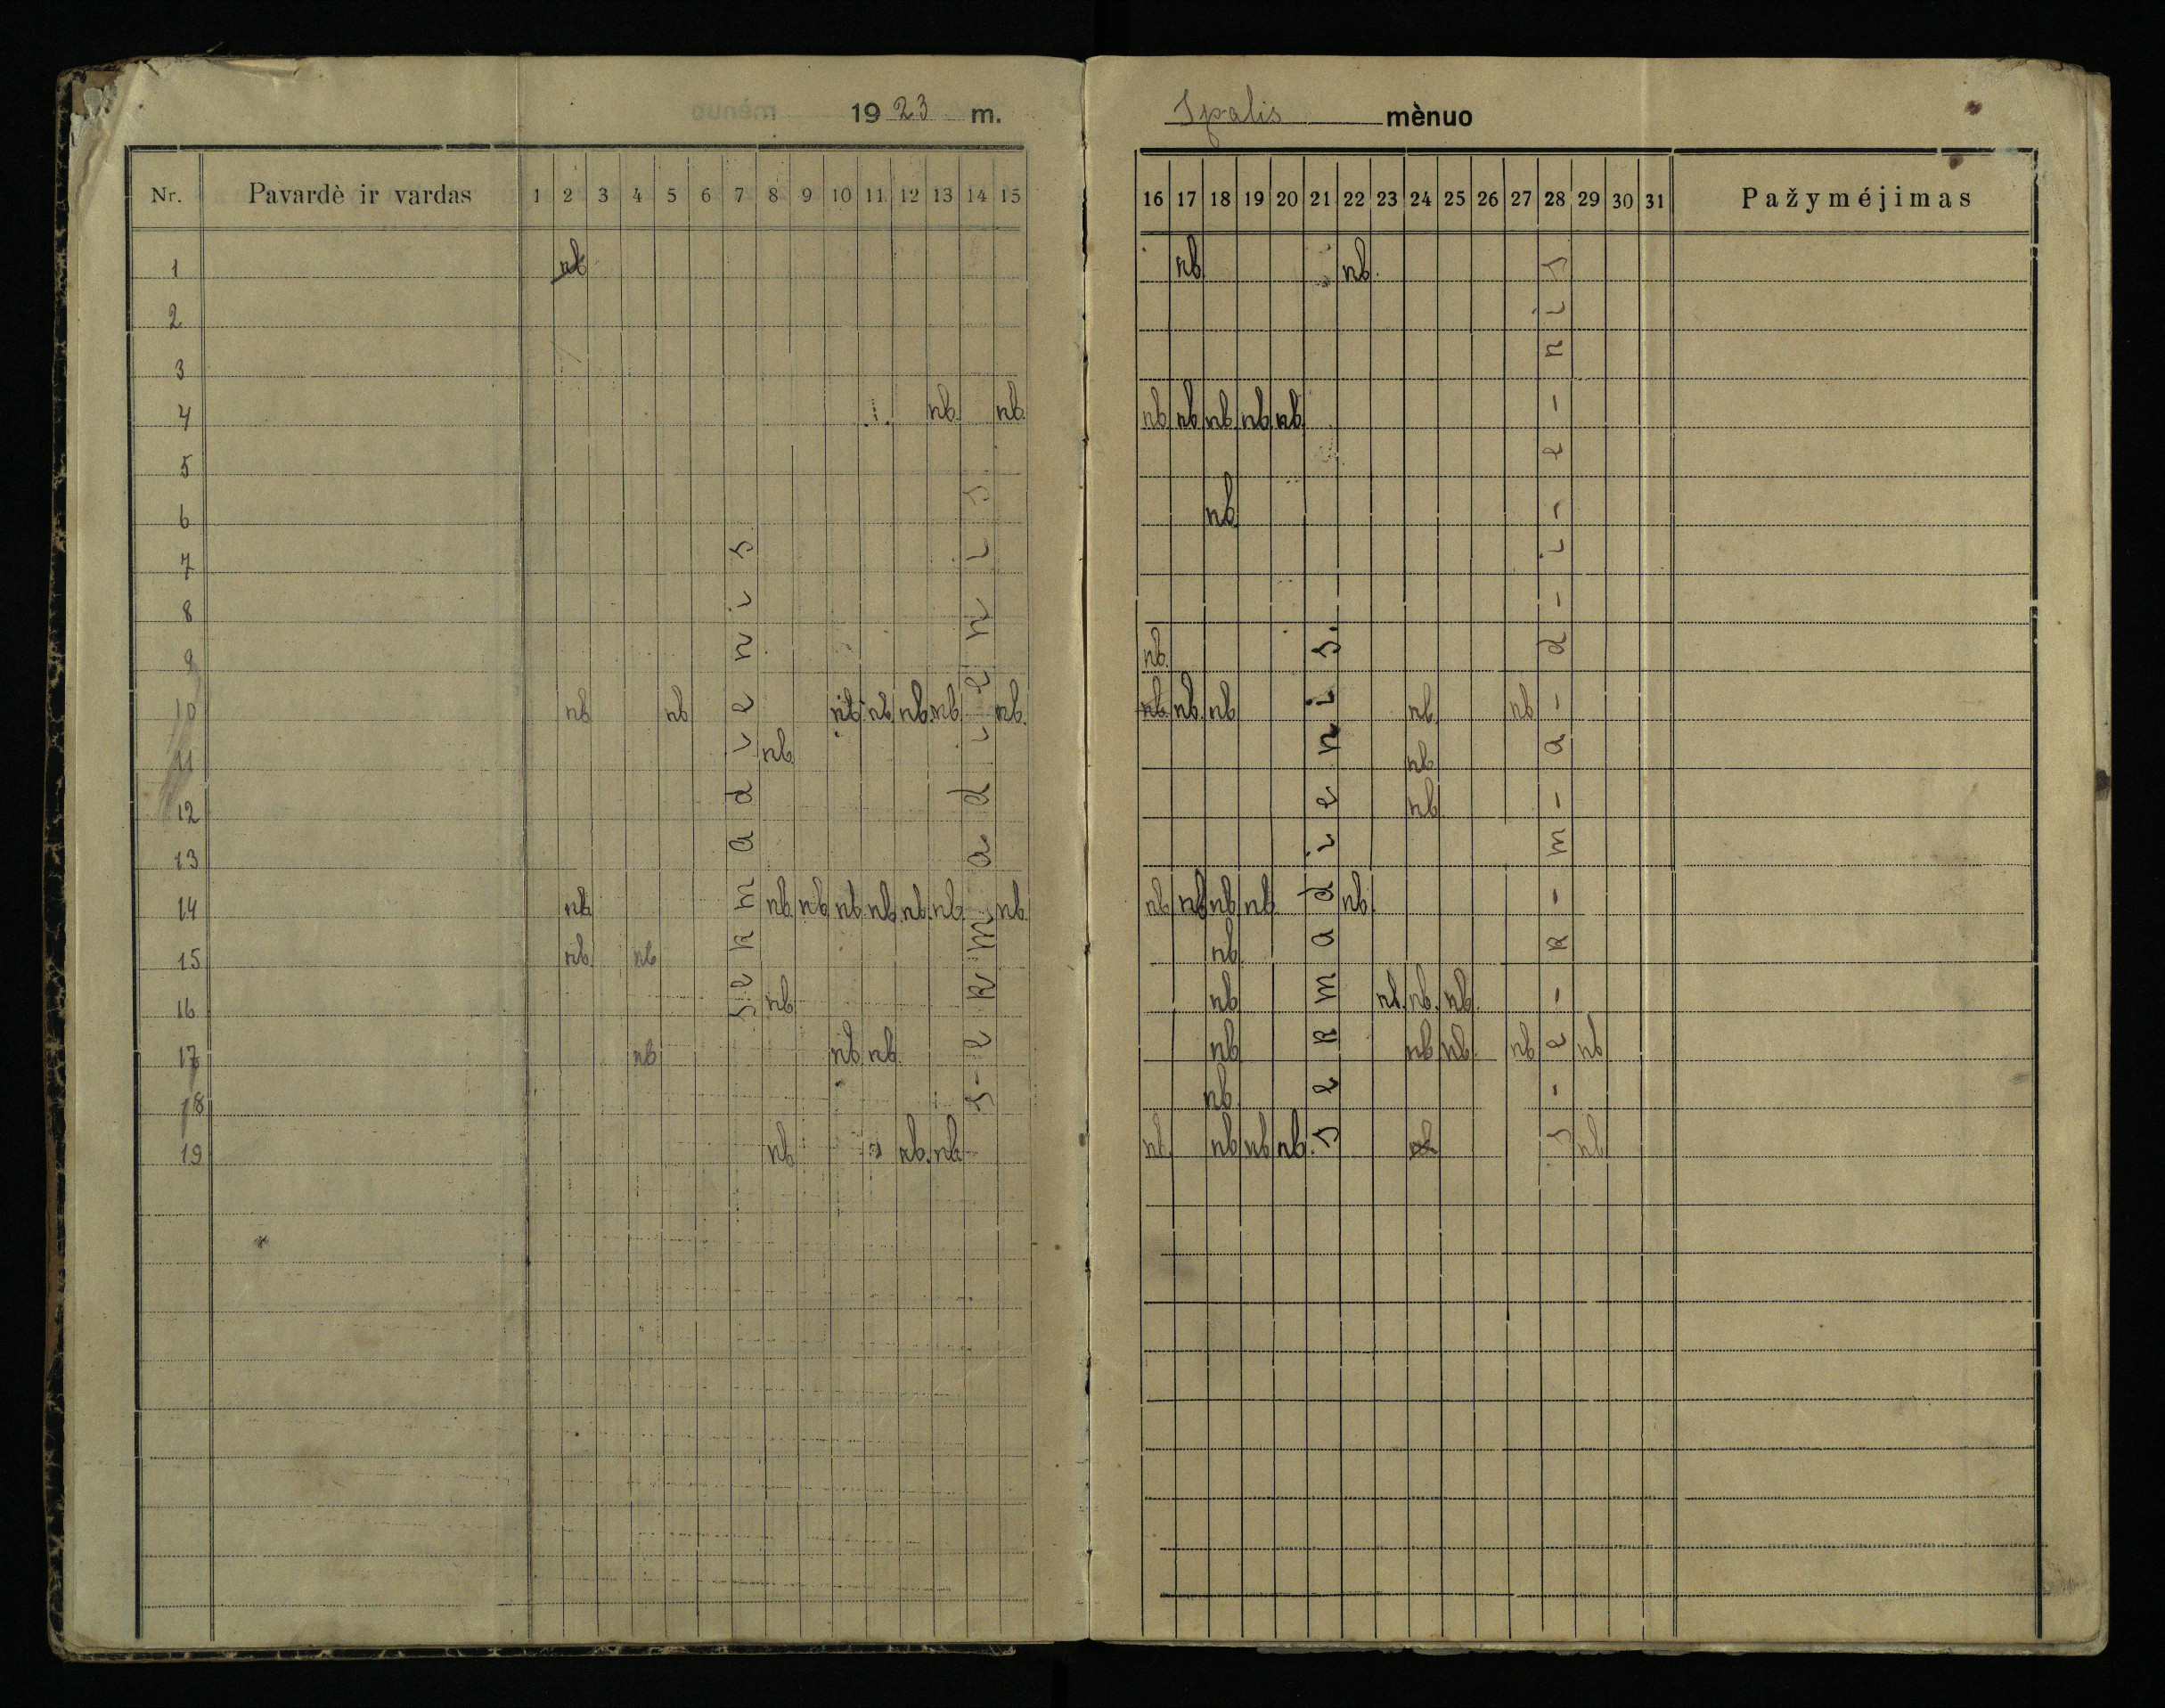 1923 m.
Spalis mènuo
Nr. Pavardė ir vardas 1 2 3 4 5 6 7 8 9 10 11 12 13 14 15
16 17 18 19 20 21 22 23 24 25 26 27 28 29 30 31 Pažyméjimas
1 nb nb. nb.
2
3
4 nb. nb. nb. nb. nb. nb. nb.
5
6 nb.
7
8
9 nb.
10 nb nb nb. nb. nb. nb. nb. nb. nb. nb. nb. nb
11 nb. nb
12 nb.
13
14 nb. nb. nb. nb. nb. nb. nb. nb. nb. nb. nb. nb. nb.
15 nb. nb nb.
16 nb. nb. nb. nb. nb.
17 nb nb. nb. nb. nb. nb. nb nb.
18 nb.
19 nb. nb. nb. nb. nb. nb. nb. nb nb.
Sekmadienis.
S-ekmadienis
Sekmadienis.
S-e-k-m-a-d-i-e-nis